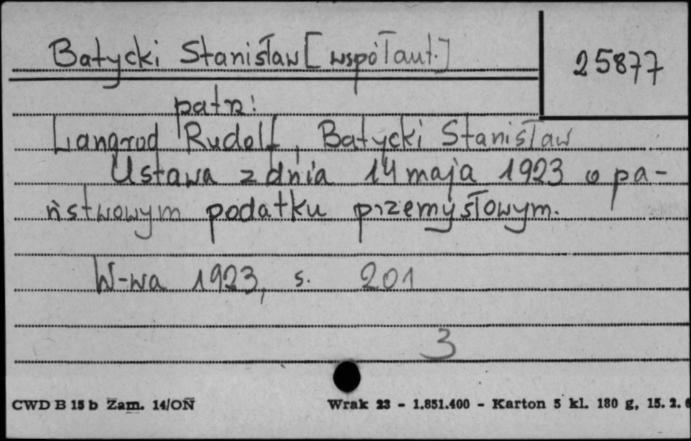 Batycki Stanisław [współaut.]
25877
patrz:
Langrod Rudolf, Batycki Stanisław
Ustawa z dnia 14 maja 1923 o pa-
ństwowym podatku przemysłowym.
W-wa 1923, s. 201
3
CWD B 15 b Zam. 14/ON Wrak 23 - 1.851.400 - Karton 5 kl. 180 g, 15. 2. 6